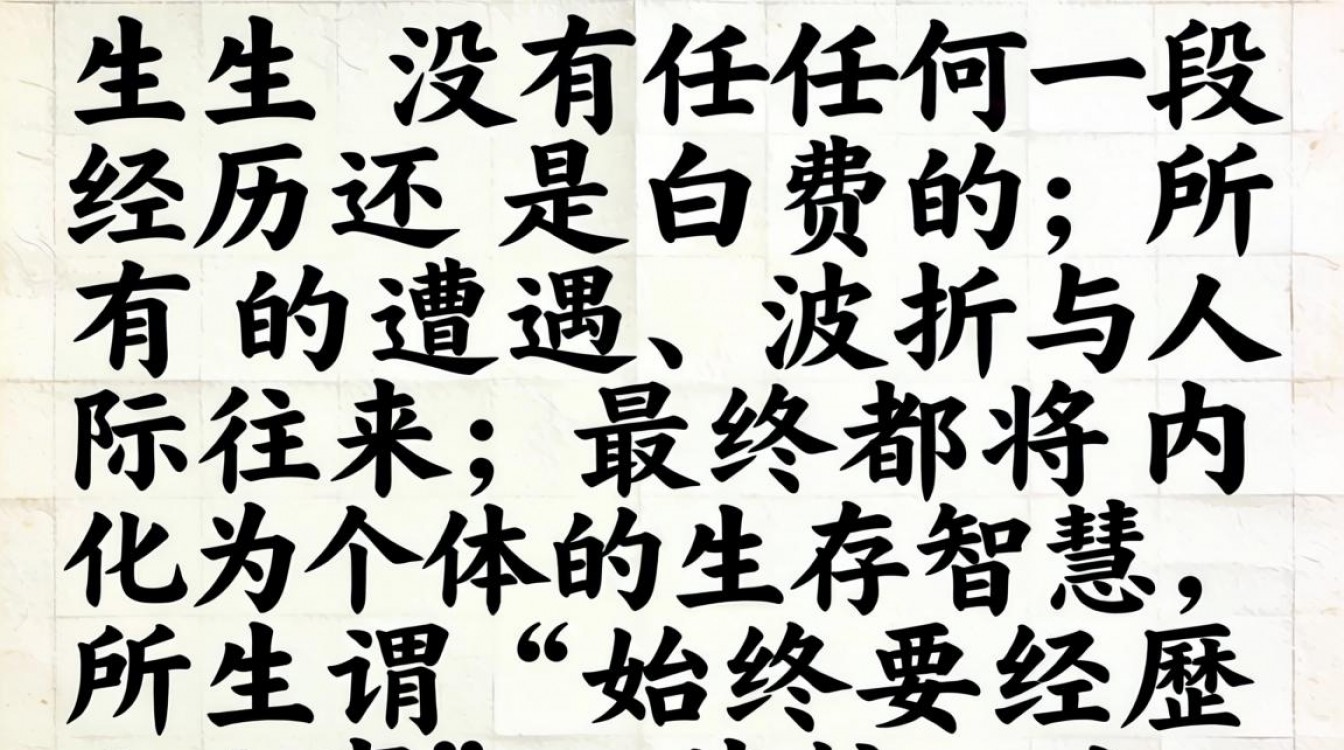 生生 没有任任何一段
经历还 是白费的；所
有 的遭遇、波折与人
际往来；最终都将 内
化为个体的生存智慧，
所生谓“始终要经歷